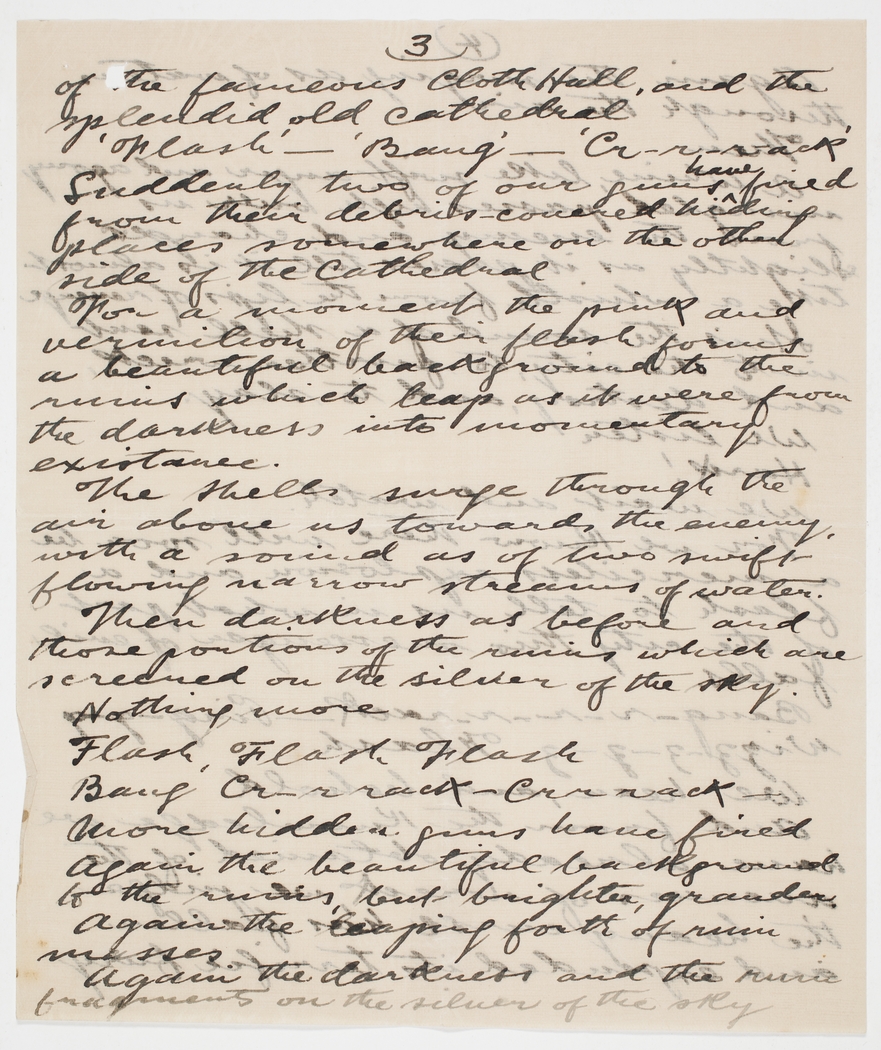 3
of the fameous Cloth Hall, and the
splendid old cathedral
'Flash' — 'Bang' — 'Cr-r-r-ack'
have
Suddenly two of our guns ^ fired
from their debris-covered hiding
places somewhere on the other
side of the Cathedral
For a moment the pink and
vermilion of their flash forms
a beautiful background to the
ruins which leap as it were from
the darkness into momentary
existance.
The shells surge through the
air above us towards the enemy,
with a sound as of two swift
flowing narrow streams of water.
Then darkness as before and
those portions of the ruins which are
screened on the silver of the sky.
Nothing more
Flash, Flash Flash
Bang Cr-r rack - Crr r ack
More hidden guns have fired
Again the beautiful background
to the ruins, but brighter, grander.
Again the leaping forth of ruin
masses
Again the darkness and the ruin
fragments on the silver of the sky